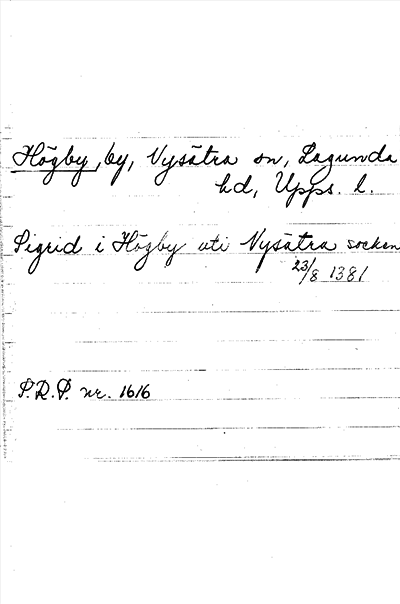 Högby, by, Nysätra sn, Lagunda
hd, Upps. l.
Sigrid i Högby uti Nysätra socken
23/8 1381
S.R.P. nr. 1616